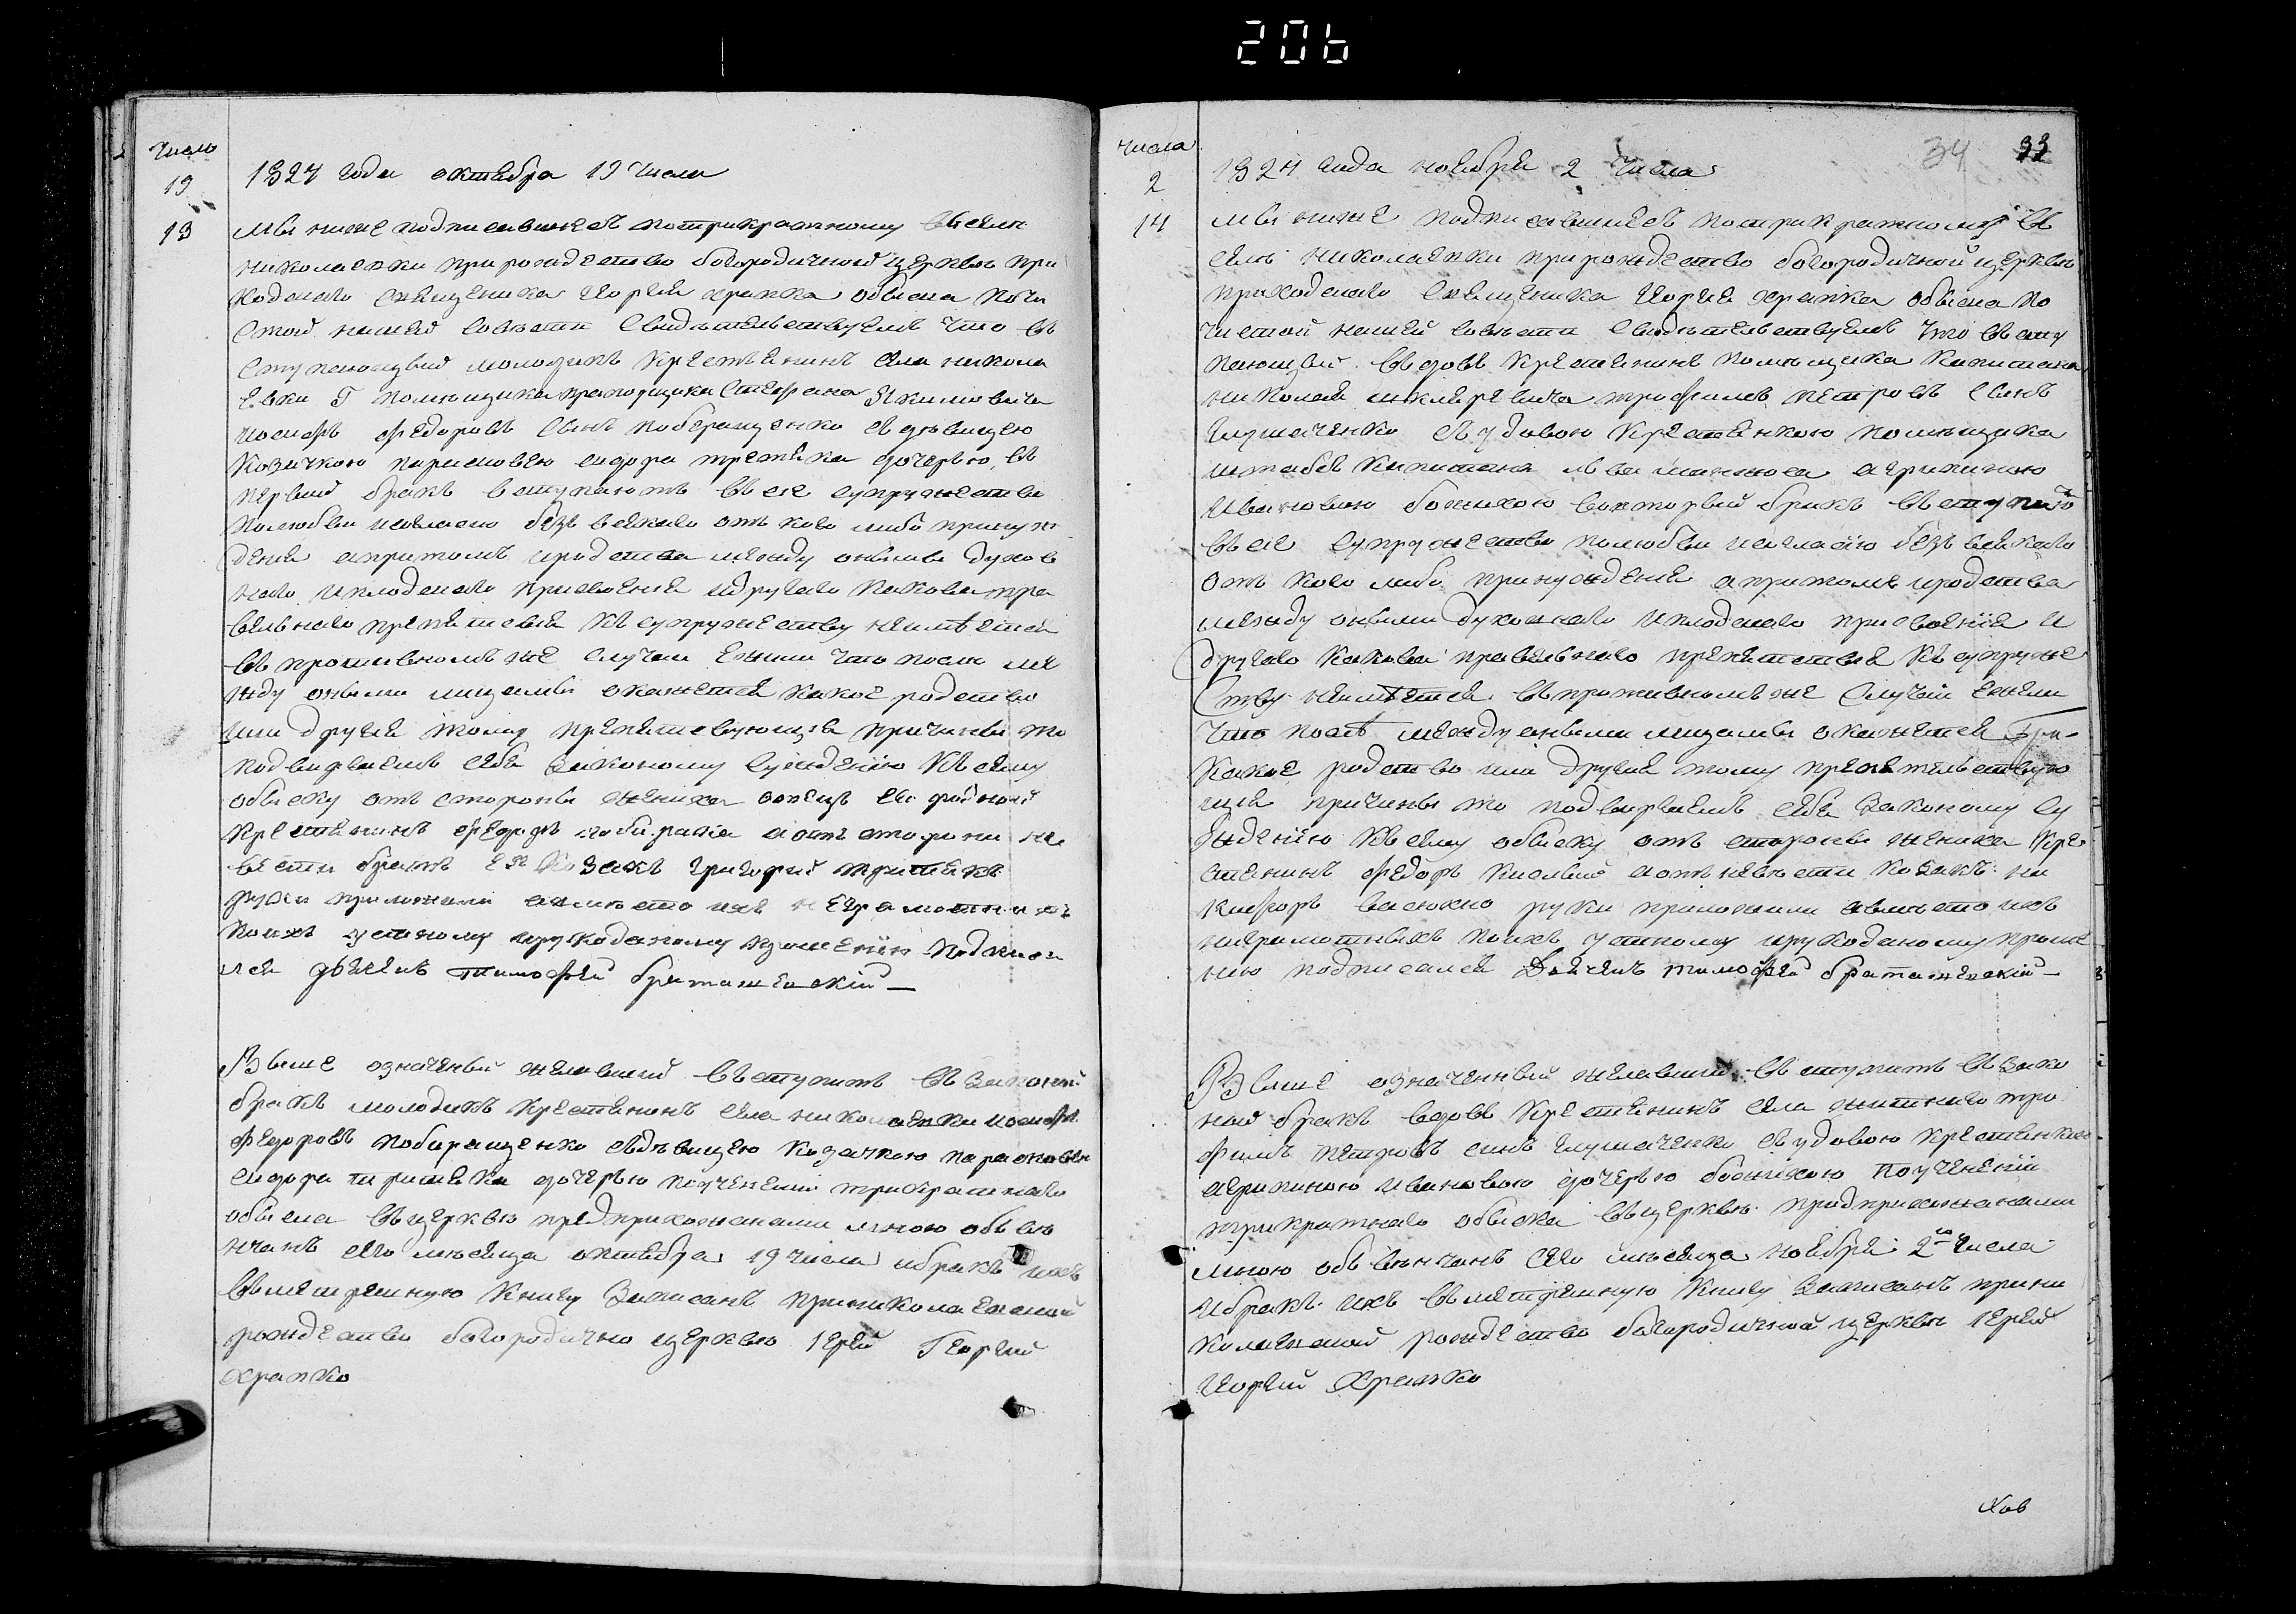 206
Число
19
13
1824 года октября 19 числа
мы ниже подписавшиесь потрикратному всели
николаевки прирождество богородичной церкви при
ходскаго священика Иоргия храпка обыска почи
стой нашей совести свидѣтельствуемъ что въ
ступающый молодикъ крестянинъ села никола
евки Г помѣщика прапорщика Стефана Якимовича
иосифъ федоровъ синъ побережщенко сѣдѣвицею
козачкою параскевею сидора третяка дочерью въ
первый бракъ вступаютъ въ сие супружество
полюбви исогласно безъ всякаго отъ кого либо принуж
дения апритомъ иродства между оными духов
наго иплодскаго присвоения идругаго каковапра
вильнаго препятствия къ супружеству неимѣется
въ противномъ же случаи ежели что посли ме
жду оными лицамы окажется какое родство
или другия тому препятствующия причины то
подвиргаемъ себя законому суждению къ сему
обыску отъ стороны жениха отецъ его родной
крестянинъ федоръ отъ стороны не
вести братъ ея козакъ григорий третякъ
руки приложили авместо ихъ неграмотныхъ
поихъ устному ирукоданому прошению подписал
лся дячекъ тимофей браташевский
Выше означеный желавший въступить въ законый
бракъ молодикъ крестянинъ села николаевки иосифъ
федоровъ побиращенко сѣдѣвицею козачкою параскевею
сидора третяка дочерью поученеии трикратнаго
обыска въцеркве предприхожанами мною обвѣ
нчанъ сего мѣсяца октября 19 числа ибракъ ихъ
въметрешную книгу записанъ приниколаевской
рождество богородично церкви Иерей Георгий
Храпко
34 33
Числа
2
14
1824 года ноября 2 числа
мы ниже подписавшиесь потрикратному въ
сели николаевки прирождество богородичной церкви
приходскаго священика Иоргия храпка обыска по
чистой нашей совести свидѣтельствуемъ что въсту
пающый въдовъ крестянинъ помѣщика капитана
николая шкляревича трофимъ петровъ синъ
глушаченко съ удовою крестянкою помѣщика
штабсъ капитана агрипиною
ивановою божикою вовторый бракъ въступаютъ
въ сие супружество полюбви исогласию безъ всякаго
отъ кого либо принуждения апритомъ иродства
между оными духовнаго иплодскаго присвоения и
другаго каковаго правильнаго препятствия къ супруже
ству неимѣется въпротивномъ же случаи ежели
что послѣ между оными лицамы окажется
какое родство или другия тому препятельствую
щия причины то подвиргаемъ себя законому су
ждению къ сему обыску отъ стороны жениха кре
стянинъ федоръ кислый аотъ невѣсти козакъ ни
кифоръ васюхно руки приложили авместо ихъ
неграмотныхъ поихъ устному ирукоданому проше
нию подписался Дячекъ тимофей браташевский
Выше означенный желавший въступить въ зако
ный бракъ вдовъ крестянинъ села житнаго тро
фимъ петровъ синъ глушаченко съ удовою крестянкою
агрипиною ивановою дочерью божикою поученеии
трикратнаго обыска въцеркви предприхожанами
мною обвѣнчанъ сего мѣсяца ноября 2го числа
ибракъ ихъ въметрешную книгу записанъ прини
колаевской рождество богородичной церкви Иерей
Иоргий Храпко
Хов